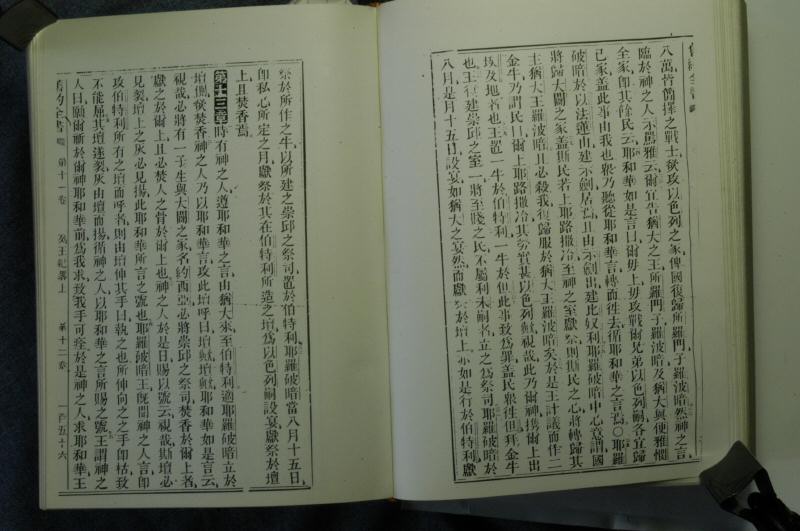 八萬皆簡擇之戰士欲攻以色列之家俾國復歸所羅門子羅波暗然神之言
臨於神之人示馬雅云爾宜告猶大之王所羅門子羅波暗及猶大與便雅憫
全家即其餘民云耶和華如是言曰爾毋上毋攻戰爾兄弟以色列嗣各宜歸
己家蓋此事由我也衆乃聽從耶和華言轉而往去循耶和華之言焉○耶羅
破暗於以法蓮山建示劍居焉且由示劍出建比奴利耶羅破暗中心意謂國
將歸大闢之家蓋斯民若上耶路撒冷至神之室獻祭則斯民之心將轉歸其
主猶大王羅波暗且必殺我復歸服於猶大王羅波暗矣於是王計議而作二
金牛乃謂民曰爾上耶路撒冷其勞實甚以色列歟視哉此乃爾神攜爾上出
埃及地者也王置一牛於伯特利一牛於但此事致爲罪蓋民衆往但拜金牛
也王復建崇邱之室一將至賤之民不屬利未嗣者立之爲祭司耶羅破暗於
八月是月十五日設宴如猶大之宴然而獻祭於壇上亦如是行於伯特利獻
祭於所作之牛以所建之崇邱之祭司置於伯特利耶羅破暗當八月十五日
即私心所定之月獻祭於其在伯特利所造之壇爲以色列嗣設宴獻祭於壇
上且焚香焉
第十三章時有神之人遵耶和華之言由猶大來至伯特利適耶羅破暗立於
壇側欲焚香神之人乃以耶和華言攻此壇呼曰壇歟壇歟耶和華如是言云
視哉必將有一子生與大闢之家名約西亞必將崇邱之祭司焚香於爾上者
獻之於爾上且必焚人之骨於爾上也神之人於是日賜以號云視哉斯壇必
見裂壇上之灰必見揚此耶和華所言之號也耶羅破暗王旣聞神之人言即
攻伯特利所有之壇而呼者則由壇伸其手曰執之也所伸向之之手即枯致
不能屈其壇遂裂灰由壇而揚循神之人以耶和華之言所賜之號王謂神之
人曰願爾祈於爾神耶和華前爲我求致我手可痊於是神之人求耶和華王
舊約全書 第十一卷 列王紀畧上 第十二章 一百五十六